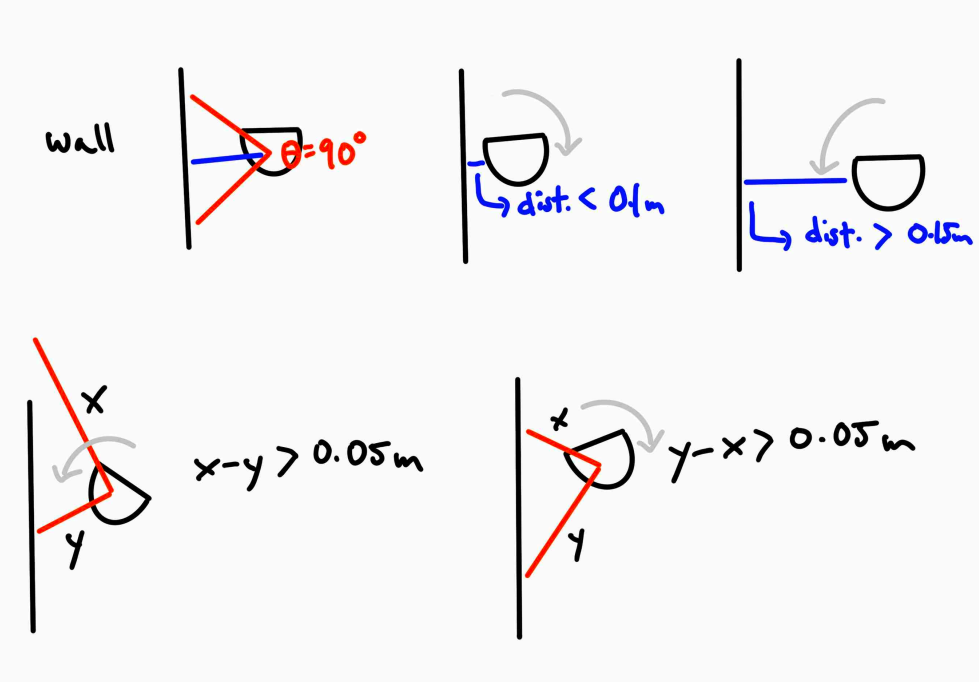 wall
θ=90°
dist. < 0.1m
dist. > 0.15m
x
x-y > 0.05m
y
x
y-x > 0.05m
y